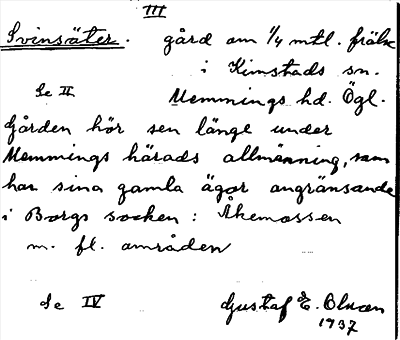 III
Svinsäter. gård om 1/4 mtl. frälse
i Kimstads sn.
Se II Memmings hd. Ögl.
Gården hör sen länge under
Memmings härads allmänning, som
har sina gamla ägor angränsande
i Borgs socken: Åkemossen
m. fl. områden
Se IV Gustaf E. Olsson
1937